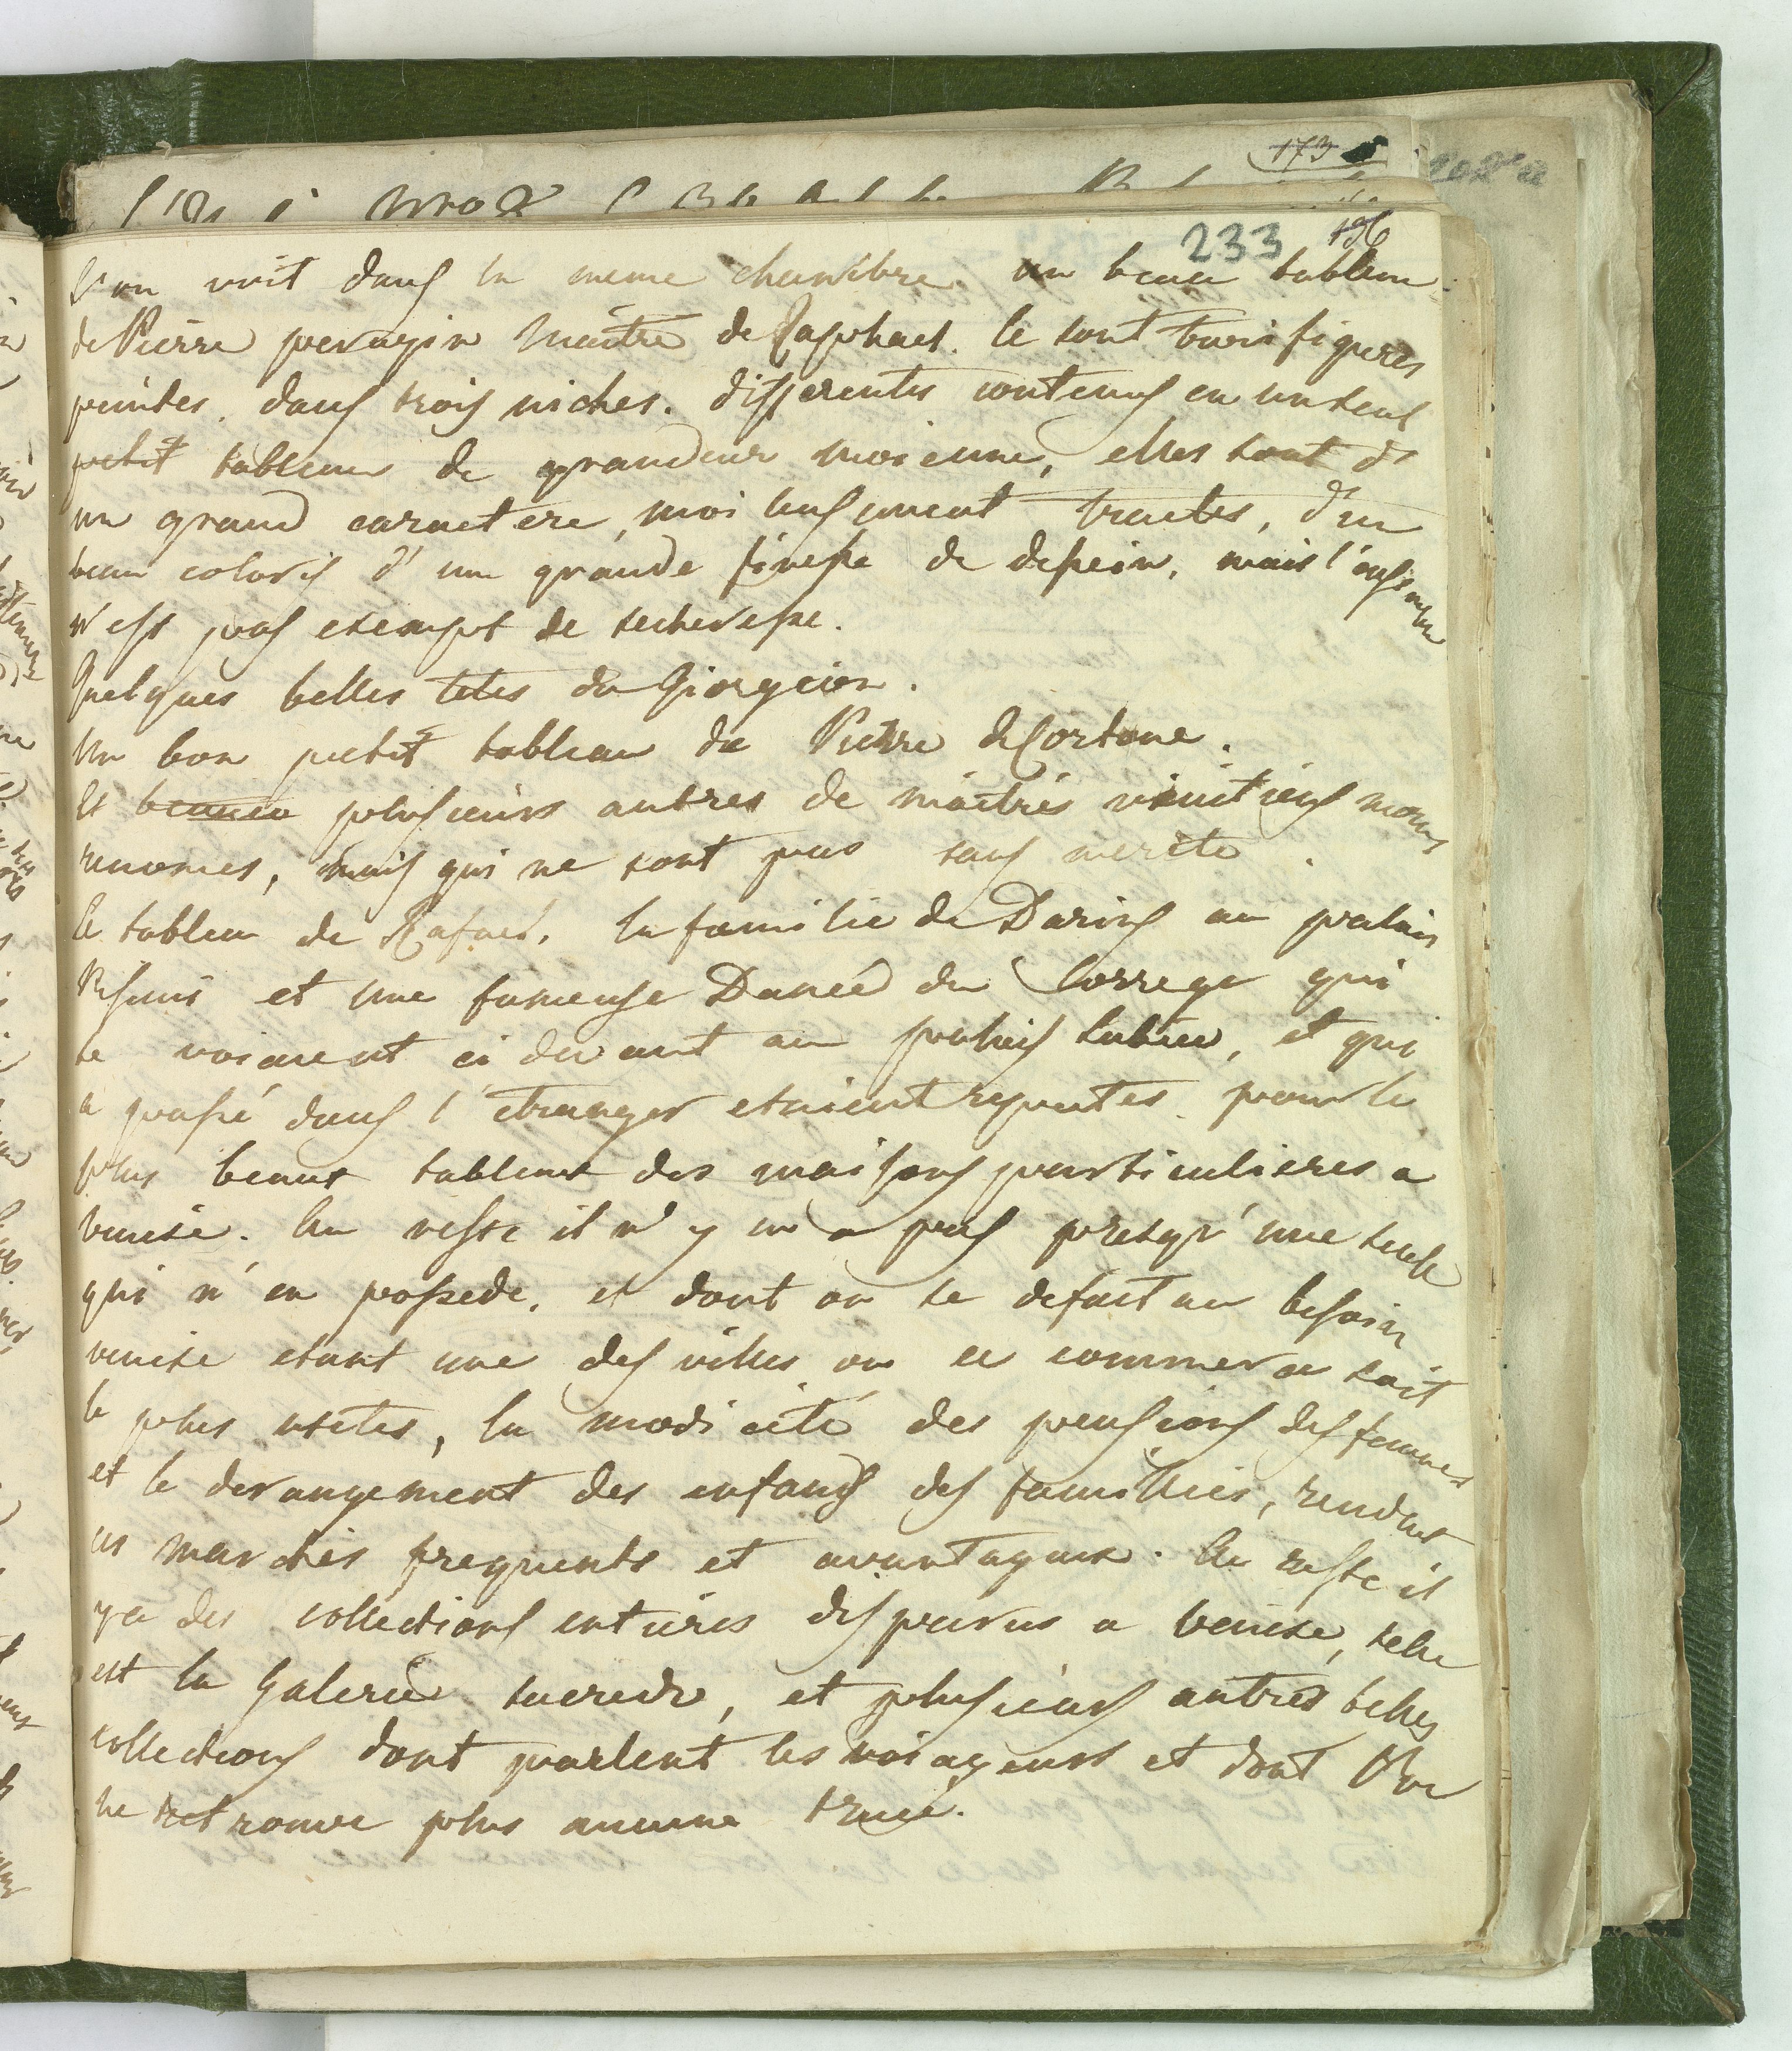 233 196
l'on voit dans la meme chambre. un beau tableau
de Pierre perugin maitre de Raphael. Ce sont trois figures
peintes. dans trois niches. differentes contenus en un seul
petit tableau de grandeur moienne, elles sont d'
un grand caractere, moileusement traités, d'un
beau coloris d'une grande finesse de dessein, mais l'ensemble
n'est pas exempt de secheresse.
Quelques belles tetes du Giorgion.
Un bon petit tableau de Pietre de Cortone.
Et beaucu plusieurs autres de maitres vénitiens moins
renomés, mais qui ne sont pas sans merite.
Le tableau de Rafael. la famille de Darius au palais
Pisani et une fameuse Danée du Correge qui
se voiaient ci devant au palais, et qui
a passé dans l'etranger etaient reputés pour le
plus beaux tableaux des maisons particulieres a
venise. Au reste il n'y en a pas presqu'une seule
qui n'en possede. et dont on se defait au besoin
venise etant une des villes ou ce commerce soit
le plus usités, la modicité des pensions des femmes
et le derangement des enfans des familles, rendent
ces marchés frequents et avantageux. Au reste il
y a des collections entieres disparus a venise, telle
est la Galerie sacredo, et plusieurs autres belles
collections dont parlent les voiageurs et dont l'on
ne retrouve plus aucune trace.